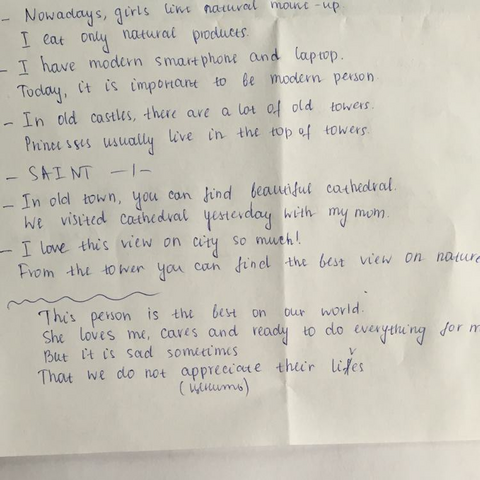 - Nowadays, girls like natural make-up.
I eat only natural products.
- I have modern smartphone and laptop.
Today, it is important to be modern person
- In old castles, there are a lot of old towers.
Princesses usually live in the top of towers.
- SAINT -1-
- In old town, you can find beautiful cathedral.
We visited cathedral yesterday with my mom.
- I love this view on city so much!
From the tower you can find the best view on nature
This person is the best on our world.
She loves me, cares and ready to do everything for m
But it is sad sometimes
That we do not appreciate their lives
(ценить)